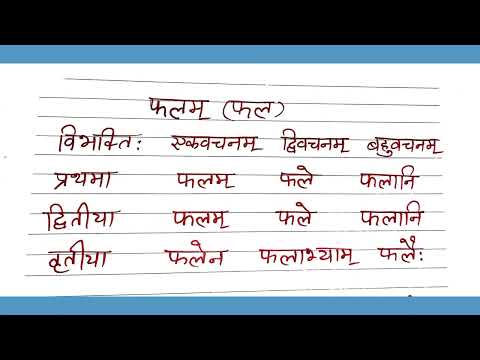 फलम् (फल)
विभक्तिः एकवचनम् द्विवचनम् बहुवचनम्
प्रथमा फलम् फले फलानि
द्वितीया फलम् फले फलानि
तृतीया फलेन फलाभ्याम् फलैः